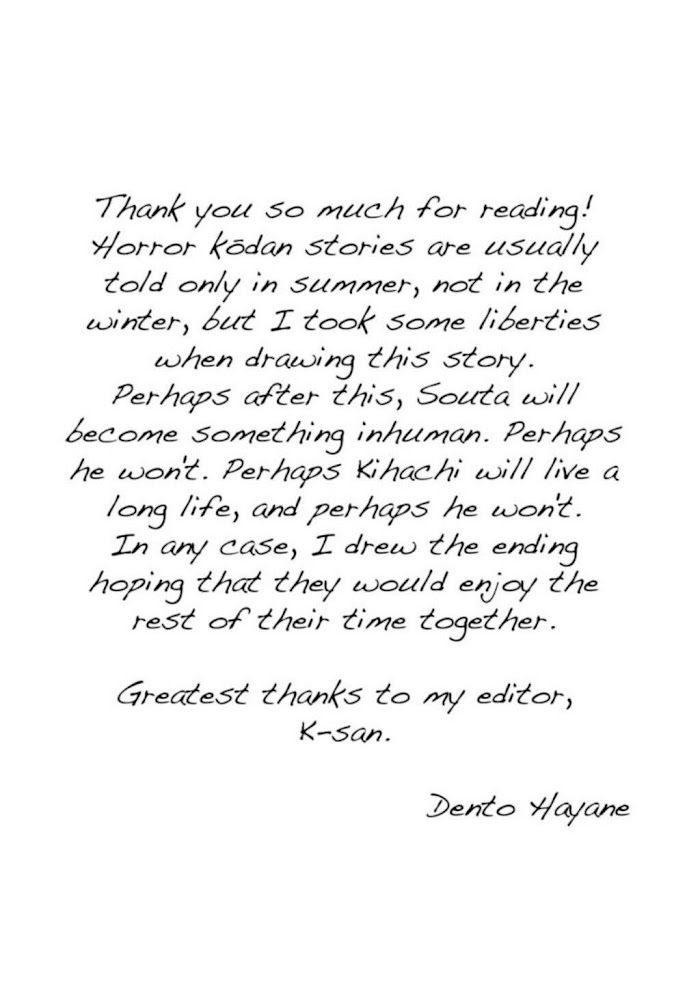 Thank you so much for reading!
Horror kōdan stories are usually
told only in summer, not in the
winter, but I took some liberties
when drawing this story.
Perhaps after this, Souta will
become something inhuman. Perhaps
he won't. Perhaps Kihachi will live a
long life, and perhaps he won't.
In any case, I drew the ending
hoping that they would enjoy the
rest of their time together.
Greatest thanks to my editor,
K-san.
Dento Hayane